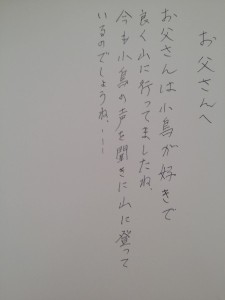 お父さんへ
お父さんは小鳥が好きで
良く山に行ってましたね
今も小鳥の声を聞きに山に登って
いるのでしょうね…